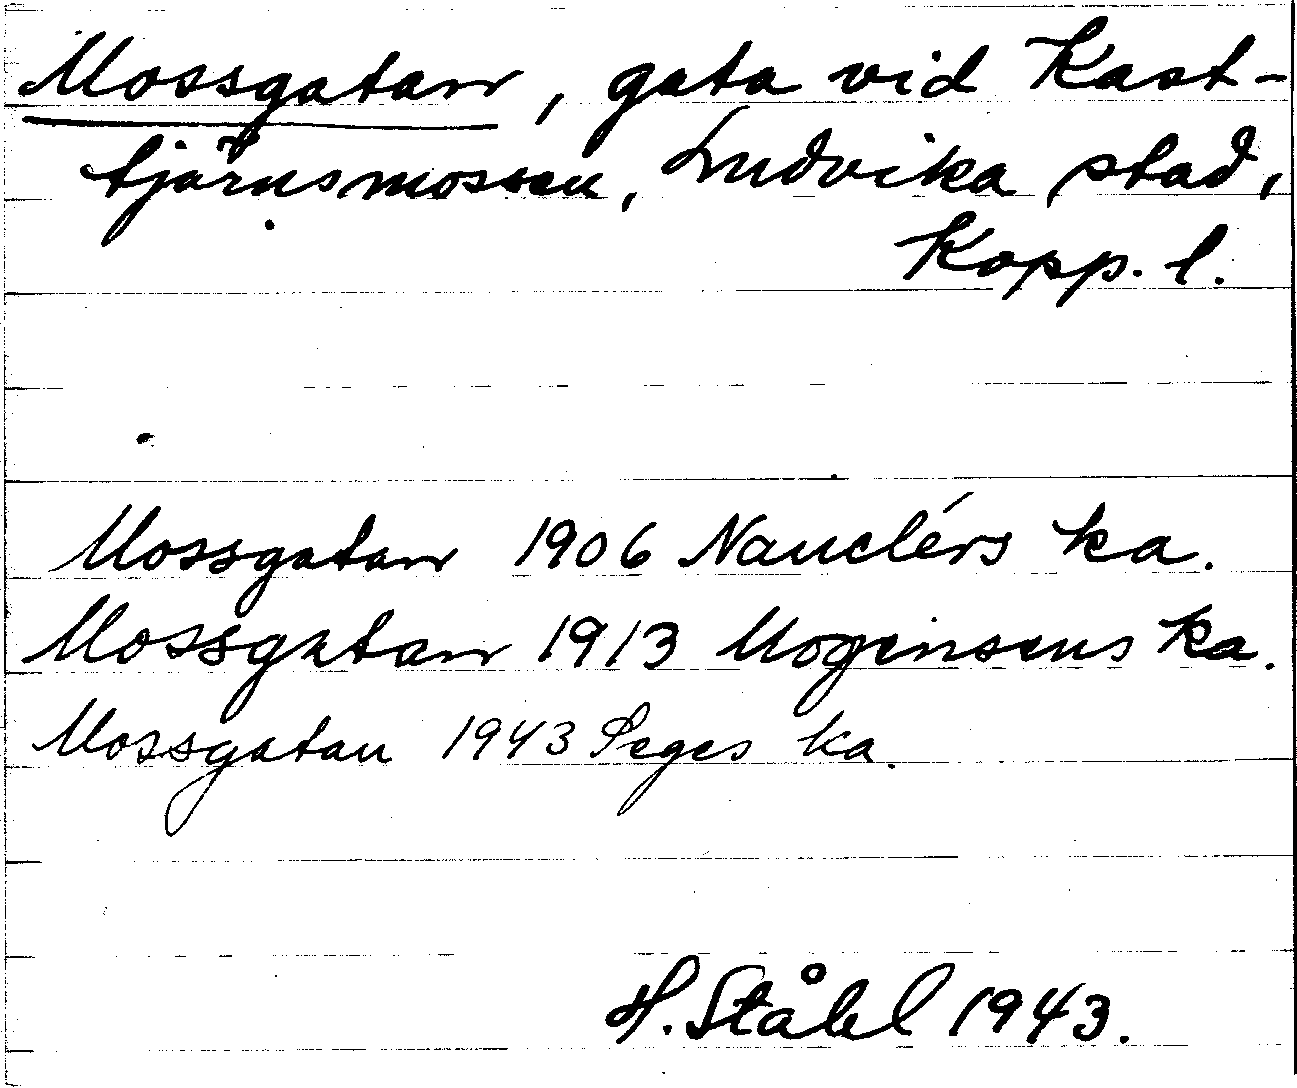 Mossgatan, gata vid Kast-
tjärnsmossen, Ludvika stad,
Kopp. l.
Mossgatan 1906 Nauclérs ka.
Mossgatan 1913 Mogensens ka.
Mossgatan 1943 Seges ka.
H. Ståhl 1943.